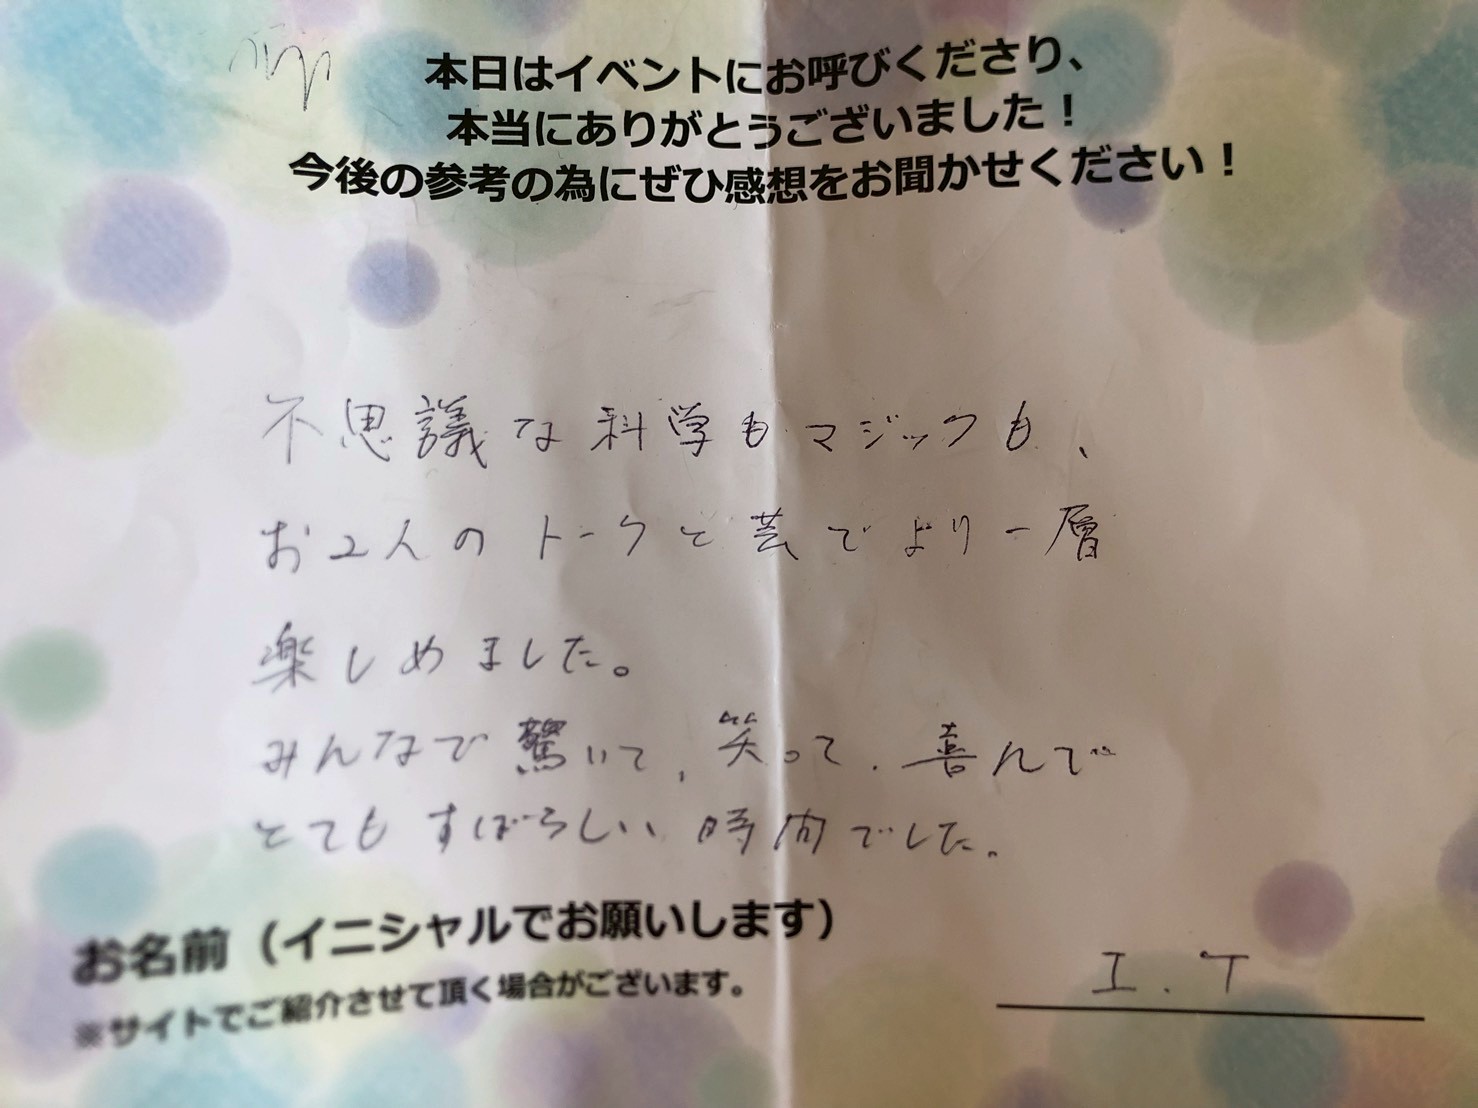 本日はイベントにお呼びくださり、
本当にありがとうございました！
今後の参考の為にぜひ感想をお聞かせください！
不思議な科学もマジックも、
お2人のトークと芸でより一層
楽しめました。
みんなで驚いて、笑って、喜んで
とてもすばらしい時間でした。
お名前（イニシャルでお願いします）
I.T
※サイトでご紹介させて頂く場合がございます。